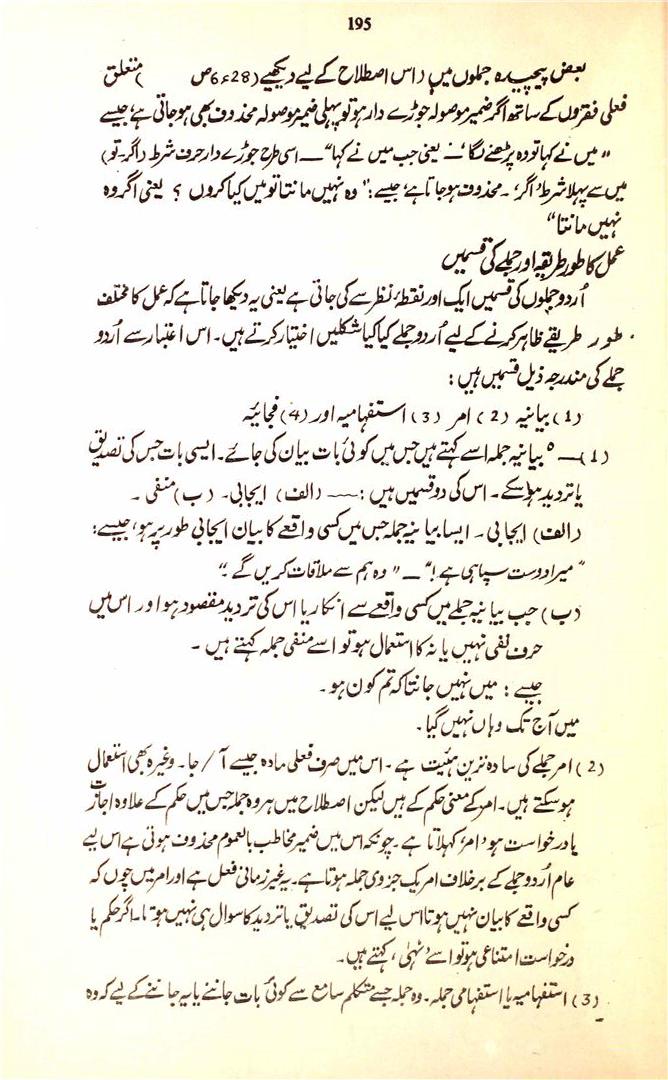 195
بعض پیچیدہ جملوں میں (اس اصطلاح کے لیے دیکھیے (28ء6ص ) متعلق
فعلی فقروں کے ساتھ اگر ضمیر موصولہ جوڑے دار ہو تو پہلی ضمیر موصولہ محذوف بھی ہو جاتی ہے، جیسے
"میں نے کہا تو وہ پڑھنے لگا" — یعنی جب میں نے کہا" — اسی طرح جوڑے دار حرف شرط (اگر۔تو)
میں سے پہلا شرط 'اگر'۔ محذوف ہو جاتا ہے، جیسے: "وہ نہیں مانتا تو میں کیا کروں ؟ یعنی اگر وہ
نہیں مانتا"
عمل کا طور طریقہ اور جملے کی قسمیں
اُردو جملوں کی قسمیں ایک اور نقطۂ نظر سے کی جاتی ہے یعنی یہ دیکھا جاتا ہے کہ عمل کا مختلف
طور طریقے ظاہر کرنے کے لیے اُردو جملے کیا کیا شکلیں اختیار کرتے ہیں۔ اس اعتبار سے اُردو
جملے کی مندرجہ ذیل قسمیں ہیں:
(1) بیانیہ (2) امر (3) استفہامیہ اور (4) فجائیہ
(1) — ° بیانیہ جملہ اسے کہتے ہیں جس میں کوئی بات بیان کی جائے۔ ایسی بات جس کی تصدیق
یا تردید ہو سکے۔ اس کی دو قسمیں ہیں: — (الف) ایجابی۔ (ب) منفی۔
(الف) ایجابی۔ ایسا بیانیہ جملہ جس میں کسی واقعے کا بیان ایجابی طور پر ہو، جیسے:
"میرا دوست سپاہی ہے!" — "وہ ہم سے ملاقات کریں گے۔"
(ب) جب بیانیہ جملے میں کسی واقعے سے انکار یا اس کی تردید مقصود ہو اور اس میں
حرف نفی نہیں یا نہ کا استعمال ہو تو اسے منفی جملہ کہتے ہیں ۔
جیسے : میں نہیں جانتا کہ تم کون ہو ۔
میں آج تک وہاں نہیں گیا۔
(2) امر جملے کی سادہ ترین ہئیت ہے ۔ اس میں صرف فعلی مادہ جیسے آ / جا۔ وغیرہ بھی استعمال
ہو سکتے ہیں۔ امر کے معنی حکم کے ہیں لیکن اصطلاح میں ہر وہ جملہ جس میں حکم کے علاوہ اجازت
یا درخواست ہو 'امر' کہلاتا ہے ۔ چونکہ اس میں ضمیر مخاطب بالعموم محذوف ہوتی ہے اس لیے
عام اُردو جملے کے برخلاف امر یک جزوی جملہ ہوتا ہے۔ یہ غیر زمانی فعل ہے اور امر میں چوں کہ
کسی واقعے کا بیان نہیں ہوتا اس لیے اس کی تصدیق یا تردید کا سوال ہی نہیں ہوتا۔ اگر حکم یا
درخواست امتناعی ہو تو اسے 'نہی' کہتے ہیں۔
(3) استفہامیہ یا استفہامی جملہ ۔ وہ جملہ جسے متکلم سامع سے کوئی بات جاننے یا یہ جاننے کے لیے کہ وہ